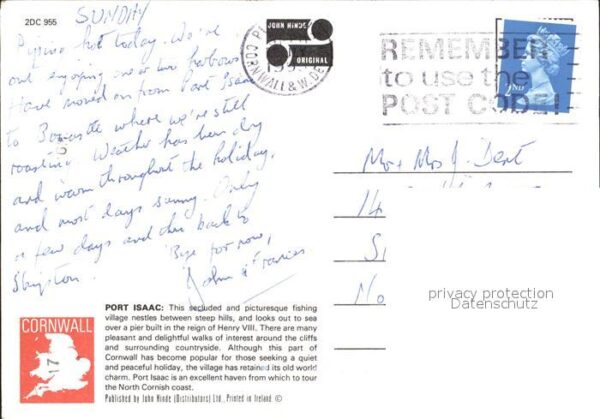 2DC 955
SUNDAY
Piping hot today. We're
out enjoying one or two harbours
Have moved on from Port Isaac
to Boscastle where we're still
roasting. Weather has been dry
and warm throughout the holiday,
and most days sunny. Only
a few days and then back to
'Bye for now,
John & Frances
JOHN HINDE
ORIGINAL
CORNWALL & W. DE
REMEMBER
to use the
POST CODE!
2ND
Mr & Mrs J. Dent
14
S
No
privacy protection
Datenschutz
CORNWALL
17
PORT ISAAC: This secluded and picturesque fishing
village nestles between steep hills, and looks out to sea
over a pier built in the reign of Henry VIII. There are many
pleasant and delightful walks of interest around the cliffs
and surrounding countryside. Although this part of
Cornwall has become popular for those seeking a quiet
and peaceful holiday, the village has retained its old world
charm. Port Isaac is an excellent haven from which to tour
the North Cornish coast.
Published by John Hinde (Distributors) Ltd., Printed in Ireland. ©